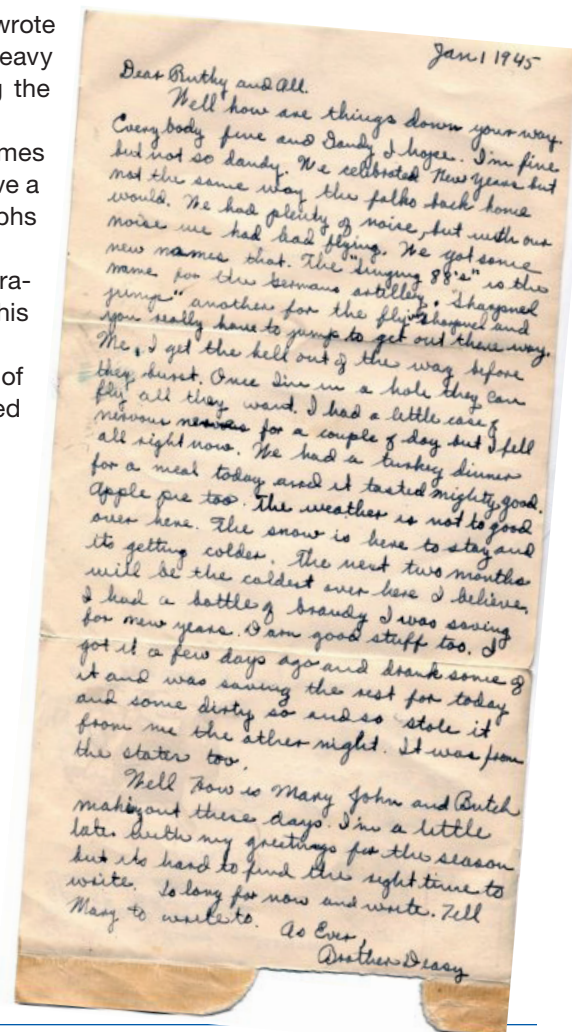 wrote
eavy
g the
mes
ve a
phs
ra-
his
of
ed
Jan 1 1945
Dear Ruthy and All.
Well how are things down your way.
Everybody fine and Dandy I hope. I'm fine
but not so dandy. We celebrated New Years but
not the same way the folks back home
would. We had plenty of noise, but with our
noise we had lead flying. We got some
new names that. The "Singing 88's" is the
name for the Germans artillery. "Shrapnel
jump" another for the fly shrapnel and
you really have to jump to get out there way.
Me, I get the hell out of the way before
they burst. Once I'm in a hole they can
fly all they want. I had a little case of
nervous nerves for a couple of day but I fell
all right now. We had a turkey dinner
for a meal today and it tasted mighty good.
Apple pie too. The weather is not to good
over here. The snow is here to stay and
its getting colder. The next two months
will be the coldest over here I believe.
I had a bottle of brandy I was saving
for new years. Darn good stuff too. I
got it a few days ago and drank some of
it and was saving the rest for today
and some dirty so and so stole it
from me the other night. It was from
the states too.
Well How is Mary John and Butch
making out these days. I'm a little
late with my greetings for the season
but its hard to find the right time to
write. So long for now and write. Tell
Mary to write to.
As Ever,
Brother Deasy